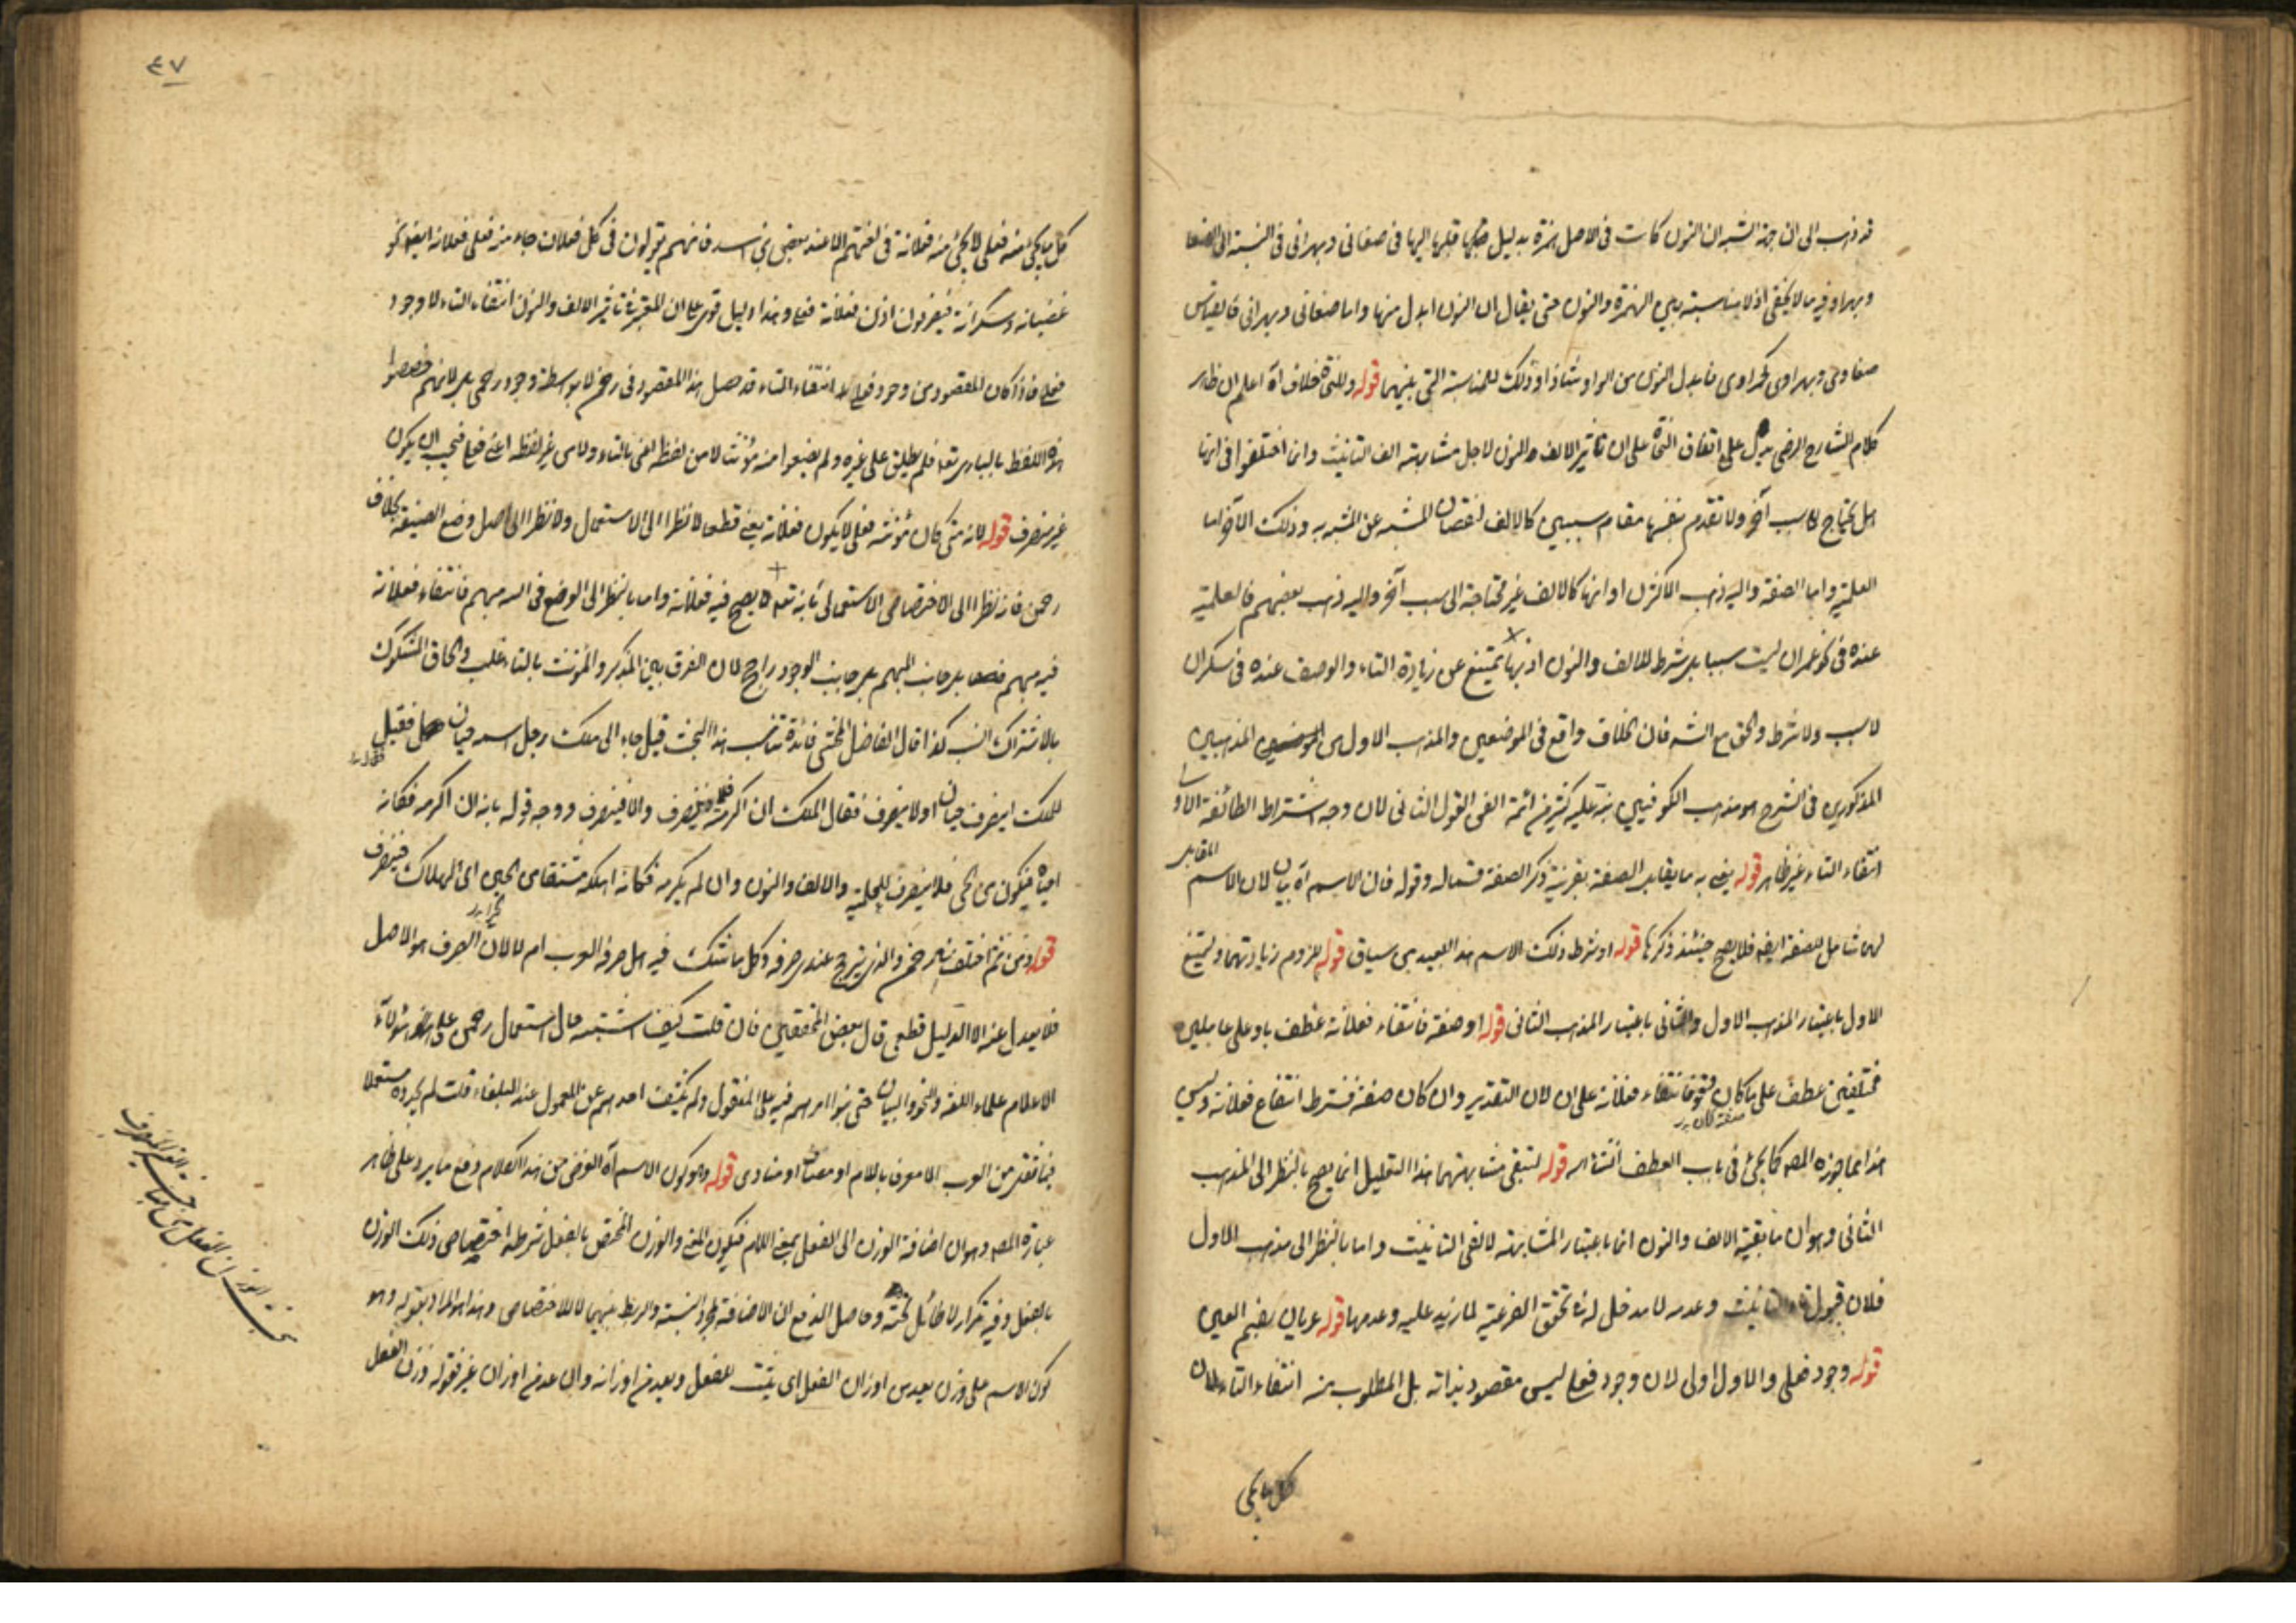 قد ذهب الى ان جهة الشبه ان النون كانت فى الاصل همزة بدليل قلبها اليها فى صنعانى وبهرانى فى النسبة الى صنعا
وبهرا وفيه ما لا يخفى اذ لا مناسبة بين الهمزة والنون حتى يقال ان النون ابدل منها واما صنعانى وبهرانى فالقياس
صنعاوى وبهراوى كحمراوى فابدل النون من الواو شاذا وذلك للمناسبة التى بينهما قوله وللنحاة خلاف آه اعلم ان ظاهر
كلام الشارح الرضى يدل على اتفاق النحاة على ان تاثير الالف والنون لاجل مشابهته الف التانيث وانما اختلفوا فى انها
هل يحتاج الى سبب آخر ولا تقوم بنفسها مقام سببين كالالف لنقصان المشبه عن المشبه به وذلك الآخر اما
العلمية واما الصفة واليه ذهب الاكثرون او انها كالالف غير محتاجة الى سبب آخر واليه ذهب بعضهم فالعلمية
عنده فى نحو عمران ليست سببا بل شرط للالف والنون اذ بها يمتنع عن زيادة التاء والوصف عنده فى سكران
لا سبب ولا شرط والحق مع الشه فان الخلاف واقع فى الموضعين والمذهب الاول من المذهبين
المذكورين فى الشرح هو مذهب الكوفيين نبه عليه كثير من ائمة الفن القول الثانى لان وجه اشتراط الطائفة الاولى
انتفاء التاء غير ظاهر قوله يعنى به ما يقابل الصفة بقرينة ذكر الصفة قسما له وقوله فان الاسم آه بيان لان الاسم المقابل
لهما شامل للصفة ايضا فلا يصح حينئذ ذكرها قوله او شرط ذلك الاسم هذا البعيد من سياق قوله للزوم زيادتهما وليمتنع
الاول باعتبار المذهب الاول والثانى باعتبار المذهب الثانى قوله او صفة فانتفاء فعلانة عطف باو على عاملين
مختلفين عطف على ما كان وقوله فانتفاء فعلانة على ان لان التقدير وان كان صفة فشرطه انتفاء فعلانة وليس
صفة كان
هذا مما جوزه المصه كما يجئ فى باب العطف انشاء الله قوله لتبقى مشابهتهما هذا التعليل انما يصح بالنظر الى المذهب
الثانى وهو ان مانعية الالف والنون انما باعتبار المشابهة لالفى التانيث واما بالنظر الى مذهب الاول
فلان قبول تاء التانيث وعدمه لا مدخل له فى تحقق الفرعية لما زيد عليه وعدمها قوله عريان بضم العين
قوله وجود فعلى والاول اولى لان وجود فعلى ليس مقصود بذاته بل المطلوب منه انتفاء التاء لان
كل ما يجئ
٤٧
كل ما يجئ منه فعلى لا يجئ منه فعلانة فى لغتهم الا عند بعض بنى اسد فانهم يقولون فى كل فعلان جاء منه فعلى فعلانة ايضا نحو
غضبانة وسكرانة فيصرفون اذن فعلانة فعلى وهذا دليل قوى على ان المعتبر فى تاثير الالف والنون انتفاء التاء لا وجود
فعلى فاذا كان المقصود من وجود فعلى انتفاء التاء قد حصل هذا المقصود فى رحمن لا بواسطة وجود رحمى بل لانهم خصصوا
هذه اللفظ بالبارى تعه فلم يطلق على غيره ولم يضعوا منه مؤنثا لا من لفظه اعنى بالتاء ولا من غير لفظه اعنى فعلى فيجب ان يكون
غير منصرف قوله لانه متى كان مؤنثه فعلى لا يكون فعلانة يعنى قطعا لا نظرا الى الاستعمال ولا نظرا الى اصل وضع الصيغة بخلاف
رحمن فانه نظرا الى الاختصاص الاستعمالى بذاته تعه لا يصح فيه فعلانة واما بالنظر الى الوضع فى الله مبهم فانتفاء فعلانة
فيه مبهم بل جانب الوجود راجح لان الفرق بين المذكر والمؤنث بالتاء غلب والحاق المشكوك
بالاشتراك انسب كذا قال الفاضل المحشى فائدة تناسب هذا البحث قيل جاء الى ملك رجل اسمه حيان فقيل
للملك اينصرف حيان او لا ينصرف فقال الملك ان اكرمته فلا ينصرف والا فينصرف ووجه قوله بانه ان اكرمه فكانه
احياه فيكون من الحى فلا ينصرف للعلمية والالف والنون وان لم يكرمه فكانه اهلكه مشتقا من الحين اى الهلاك فينصرف
قوله ومن ثم اختلف فى رحمن والذى يترجح عندى صرفه وكل ما شك فيه هل صرفه العرب ام لا لان الصرف هو الاصل
فلا يعدل عنه الا لدليل قطعى قال بعض المحققين فان قلت كيف اشتبه حال استعمال رحمن على هؤلاء
الاعلام علماء اللغة والنحو والبيان حتى بنوا امرهم فيه على المنقول ولم يكشف احدهم عن المعمول عند البلغاء قلت لم يجدوه مستعملا
فيما نقل من العرب الا معرفا باللام او مضافا او منادى قوله وهو كون الاسم آه الغرض من هذا الكلام دفع ما يرد على ظاهر
عبارة المصه وهو ان اضافة الوزن الى الفعل بمعنى اللام فيكون المعنى والوزن المختص بالفعل شرطه اختصاص ذلك الوزن
بالفعل وفيه تكرار لا طائل تحته وحاصل الدفع ان الاضافة لمجرد النسبة والربط بينهما لا للاختصاص وهذا هو المراد بقوله وهو
كون الاسم على وزن يعد من اوزان الفعل اى يثبت للفعل ويعد من اوزانه وان عد من اوزان غيره قوله وزن الفعل